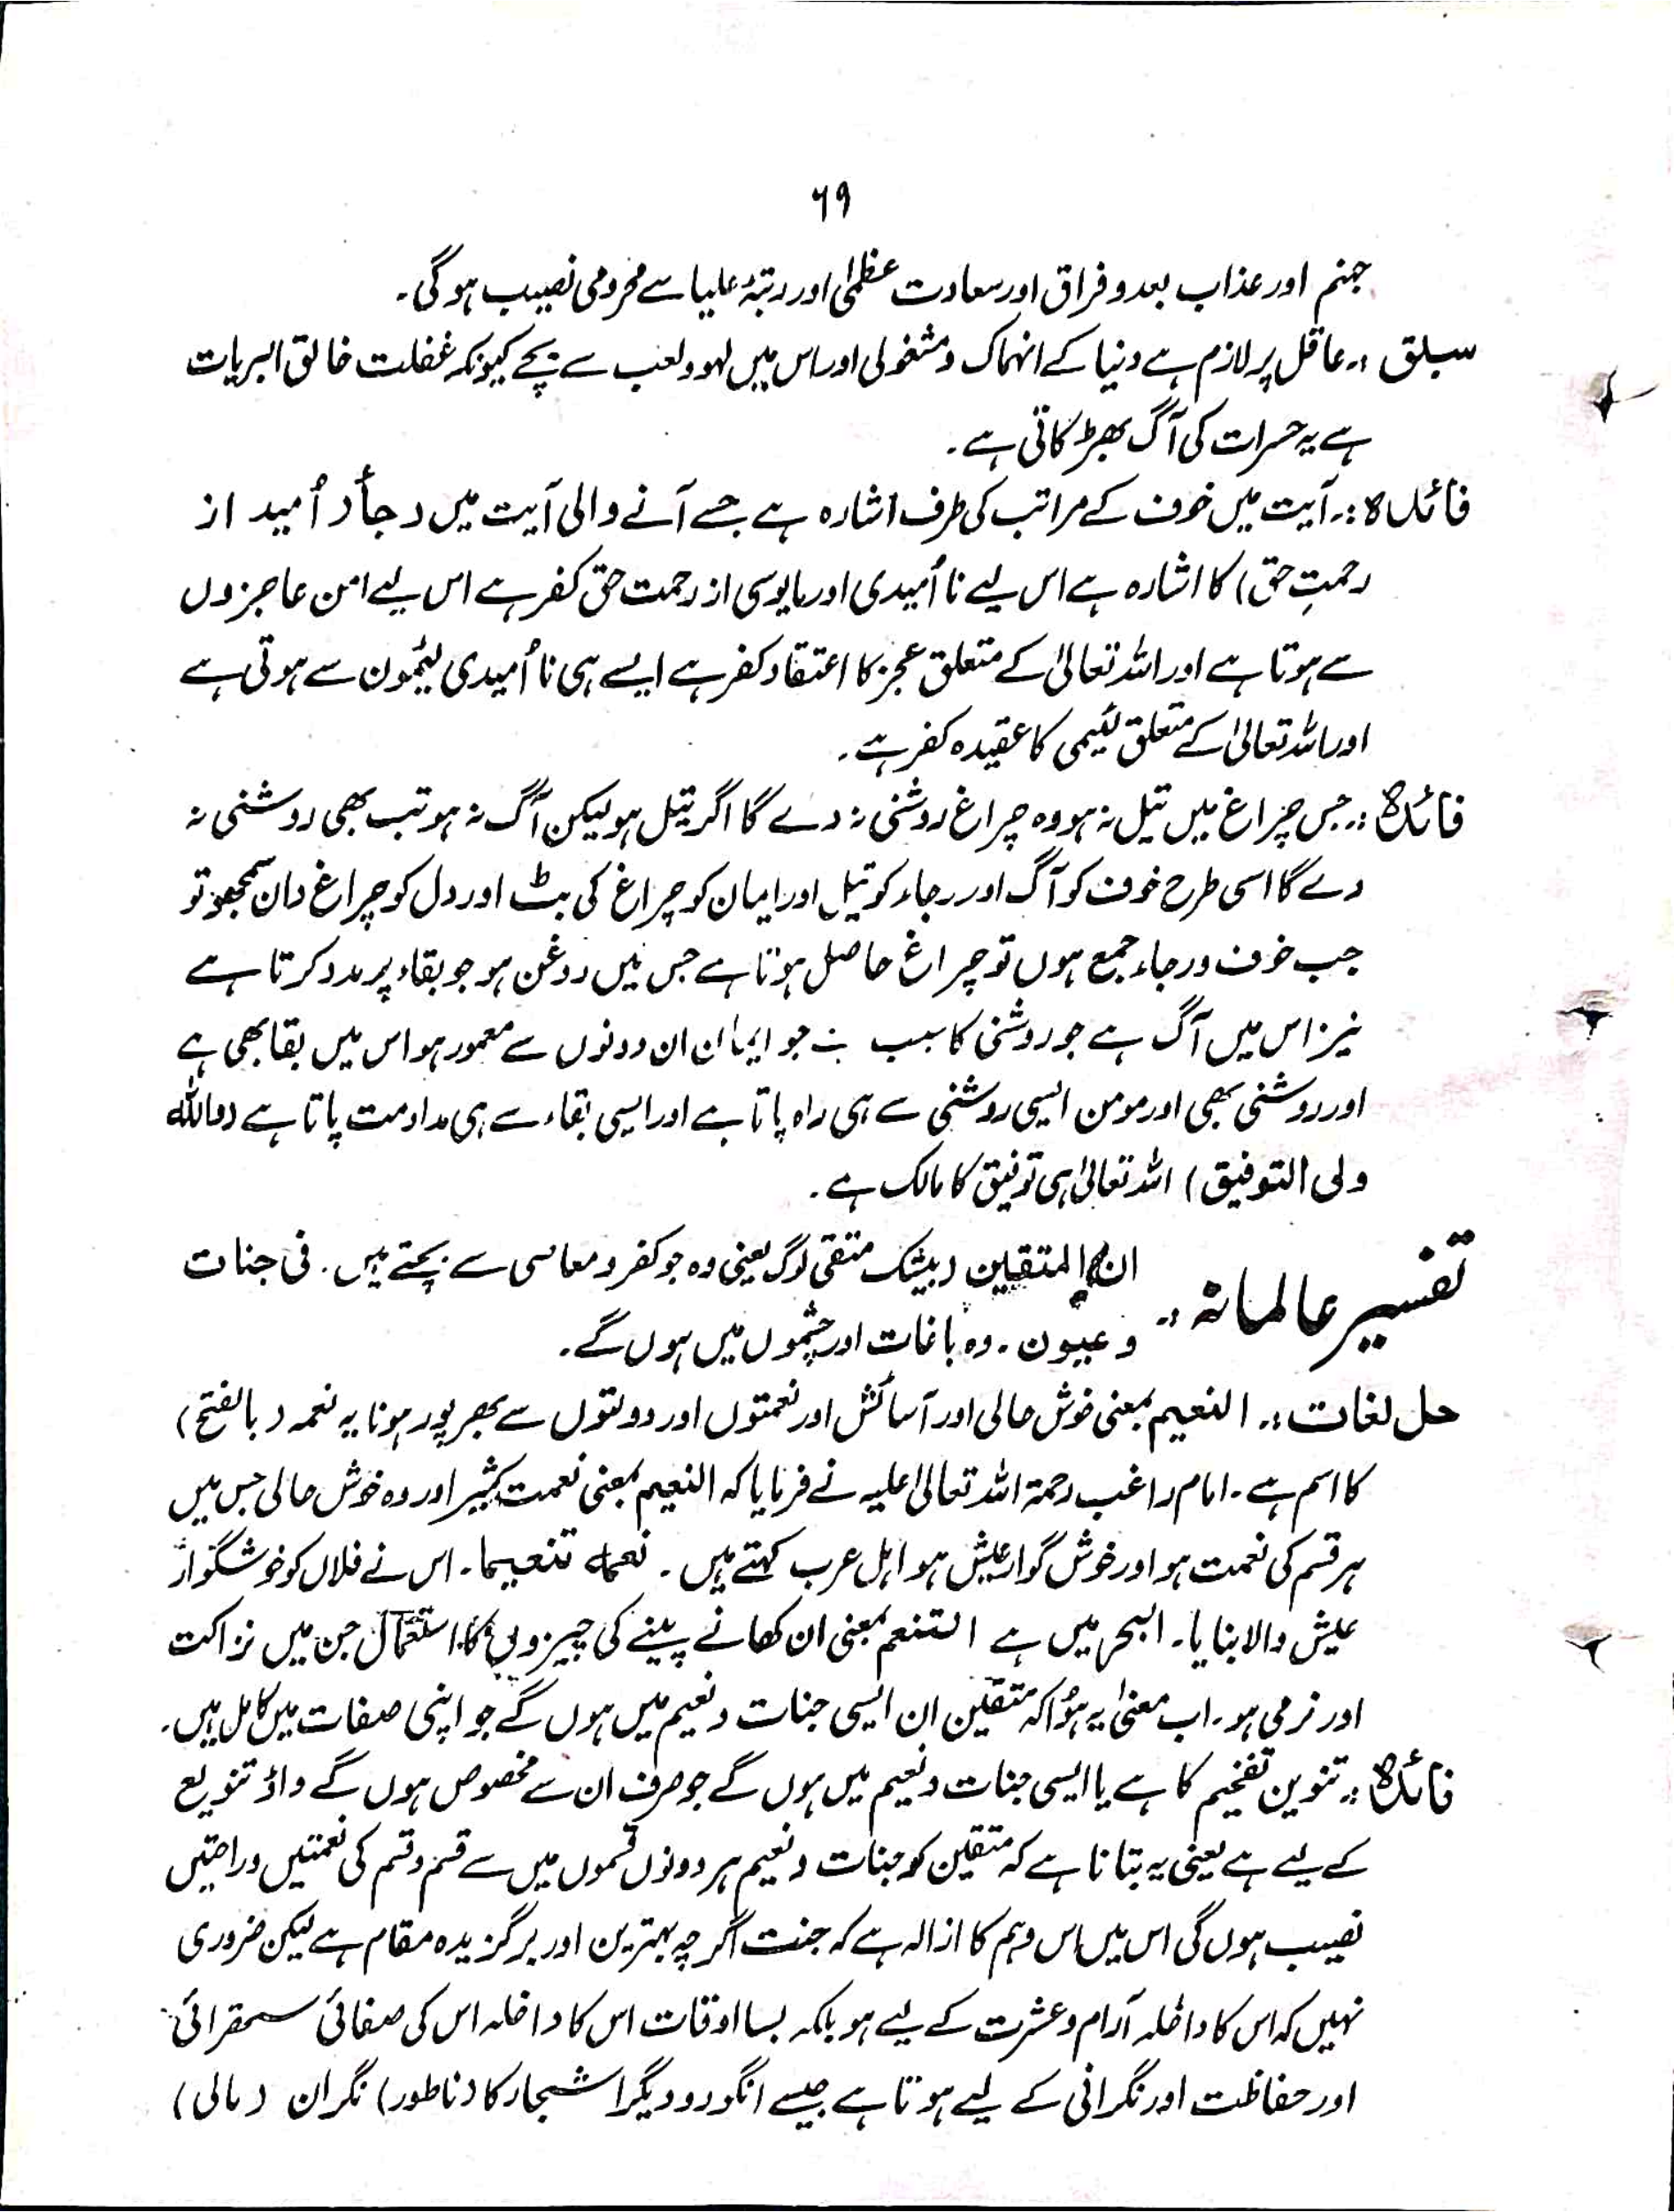 ۶۹
جہنم اور عذاب بعد و فراق اور سعادت عظمیٰ اور رتبۂ علیا سے محرومی نصیب ہوگی۔
سبلق :۔ عاقل پر لازم ہے دنیا کے انہماک و مشغولی اور اس میں لہو و لعب سے بچے کیونکہ غفلت خالق البریات
ہے یہ حسرات کی آگ بھڑکاتی ہے۔
فائدہ :۔ آیت میں خوف کے مراتب کی طرف اشارہ ہے جسے آنے والی آیت میں رجأ (اُمید از
رحمتِ حق) کا اشارہ ہے اس لیے نا اُمیدی اور مایوسی از رحمت حق کفر ہے اس لیے امن عاجزوں
سے ہوتا ہے اور اللہ تعالیٰ کے متعلق عجز کا اعتقاد کفر ہے ایسے ہی نا اُمیدی لئیموں سے ہوتی ہے
اور اللہ تعالیٰ کے متعلق لئیمی کا عقیدہ کفر ہے۔
فائدہ :۔ جس چراغ میں تیل نہ ہو وہ چراغ روشنی نہ دے گا اگر تیل ہو لیکن آگ نہ ہو تب بھی روشنی نہ
دے گا اسی طرح خوف کو آگ اور رجاء کو تیل اور ایمان کو چراغ کی بٹ اور دل کو چراغ دان سمجھو تو
جب خوف و رجاء جمع ہوں تو چراغ حاصل ہوتا ہے جس میں روغن ہو جو بقاء پر مدد کرتا ہے
نیز اس میں آگ ہے جو روشنی کا سبب ہے جو ایمان ان دونوں سے معمور ہو اس میں بقا بھی ہے
اور روشنی بھی اور مومن ایسی روشنی سے ہی راہ پاتا ہے اور ایسی بقاء سے ہی مداومت پاتا ہے (واللہ
ولی التوفیق) اللہ تعالیٰ ہی توفیق کا مالک ہے۔
تفسیر عالمانہ :۔ ان المتقین (بیشک متقی لوگ یعنی وہ جو کفر و معاصی سے بچتے ہیں۔ فی جنات
و عیون۔ وہ باغات اور چشموں میں ہوں گے۔
حل لغات :۔ النعیم بمعنی خوش حالی اور آسائش اور نعمتوں اور دولتوں سے بھرپور ہونا یہ نعمہ (بالفتح)
کا اسم ہے۔ امام راغب رحمۃ اللہ تعالیٰ علیہ نے فرمایا کہ النعیم بمعنی نعمت کثیر اور وہ خوش حالی جس میں
ہر قسم کی نعمت ہو اور خوش گوار عیش ہو اہل عرب کہتے ہیں۔ نعمہ تنعیما۔ اس نے فلاں کو خوشگوار
عیش والا بنایا۔ البحر میں ہے التنعم بمعنی ان کھانے پینے کی چیزوں کا استعمال جن میں نزاکت
اور نرمی ہو۔ اب معنیٰ یہ ہؤا کہ متقین ان ایسی جنات و نعیم میں ہوں گے جو اپنی صفات میں کامل ہیں۔
فائدہ :۔ تنوین تفخیم کا ہے یا ایسی جنات و نعیم میں ہوں گے جو صرف ان سے مخصوص ہوں گے واؤ تنویع
کے لیے ہے یعنی یہ بتانا ہے کہ متقین کو جنات و نعیم ہر دونوں قسموں میں سے قسم و قسم کی نعمتیں و راحتیں
نصیب ہوں گی اس میں اس وہم کا ازالہ ہے کہ جنت اگرچہ بہترین اور برگزیدہ مقام ہے لیکن ضروری
نہیں کہ اس کا داخلہ آرام و عشرت کے لیے ہو بلکہ بسا اوقات اس کا داخلہ اس کی صفائی ستھرائی
اور حفاظت اور نگرانی کے لیے ہوتا ہے جیسے انگور و دیگر اشجار کا (ناطور) نگران (مالی)